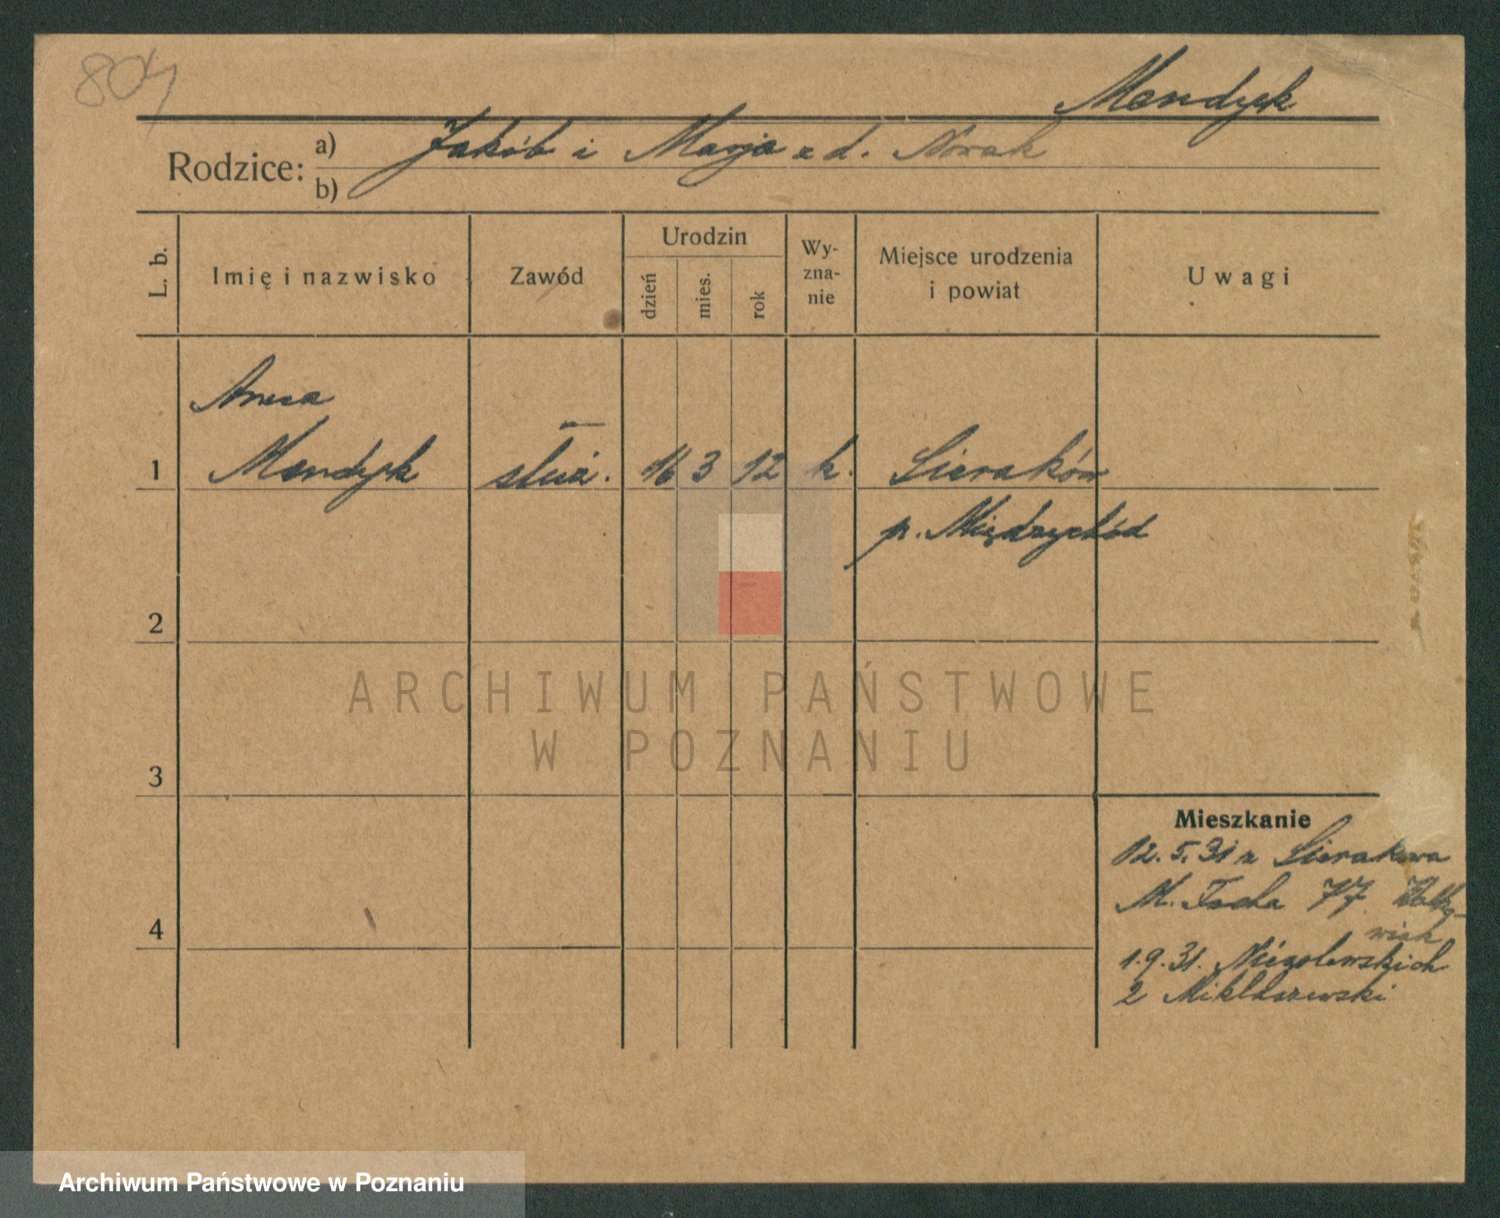 804
Mendyk
Rodzice:
a) Jakób i Marja z d. Nowak
b)
L. b.
Imię i nazwisko
Zawód
Urodzin
dzień
mies.
rok
Wy-
zna-
nie
Miejsce urodzenia
i powiat
Uwagi
Anna
1 Mendyk służ. 16 3 12 k. Sieraków
p. Międzychód
2
ARCHIWUM PAŃSTWOWE
W POZNANIU
3
Mieszkanie
12.5.31 z Sierakowa
M. Focha 77
4
wiak
1.9.31. Niegolewskich
2 Mikłaszewski
Archiwum Państwowe w Poznaniu